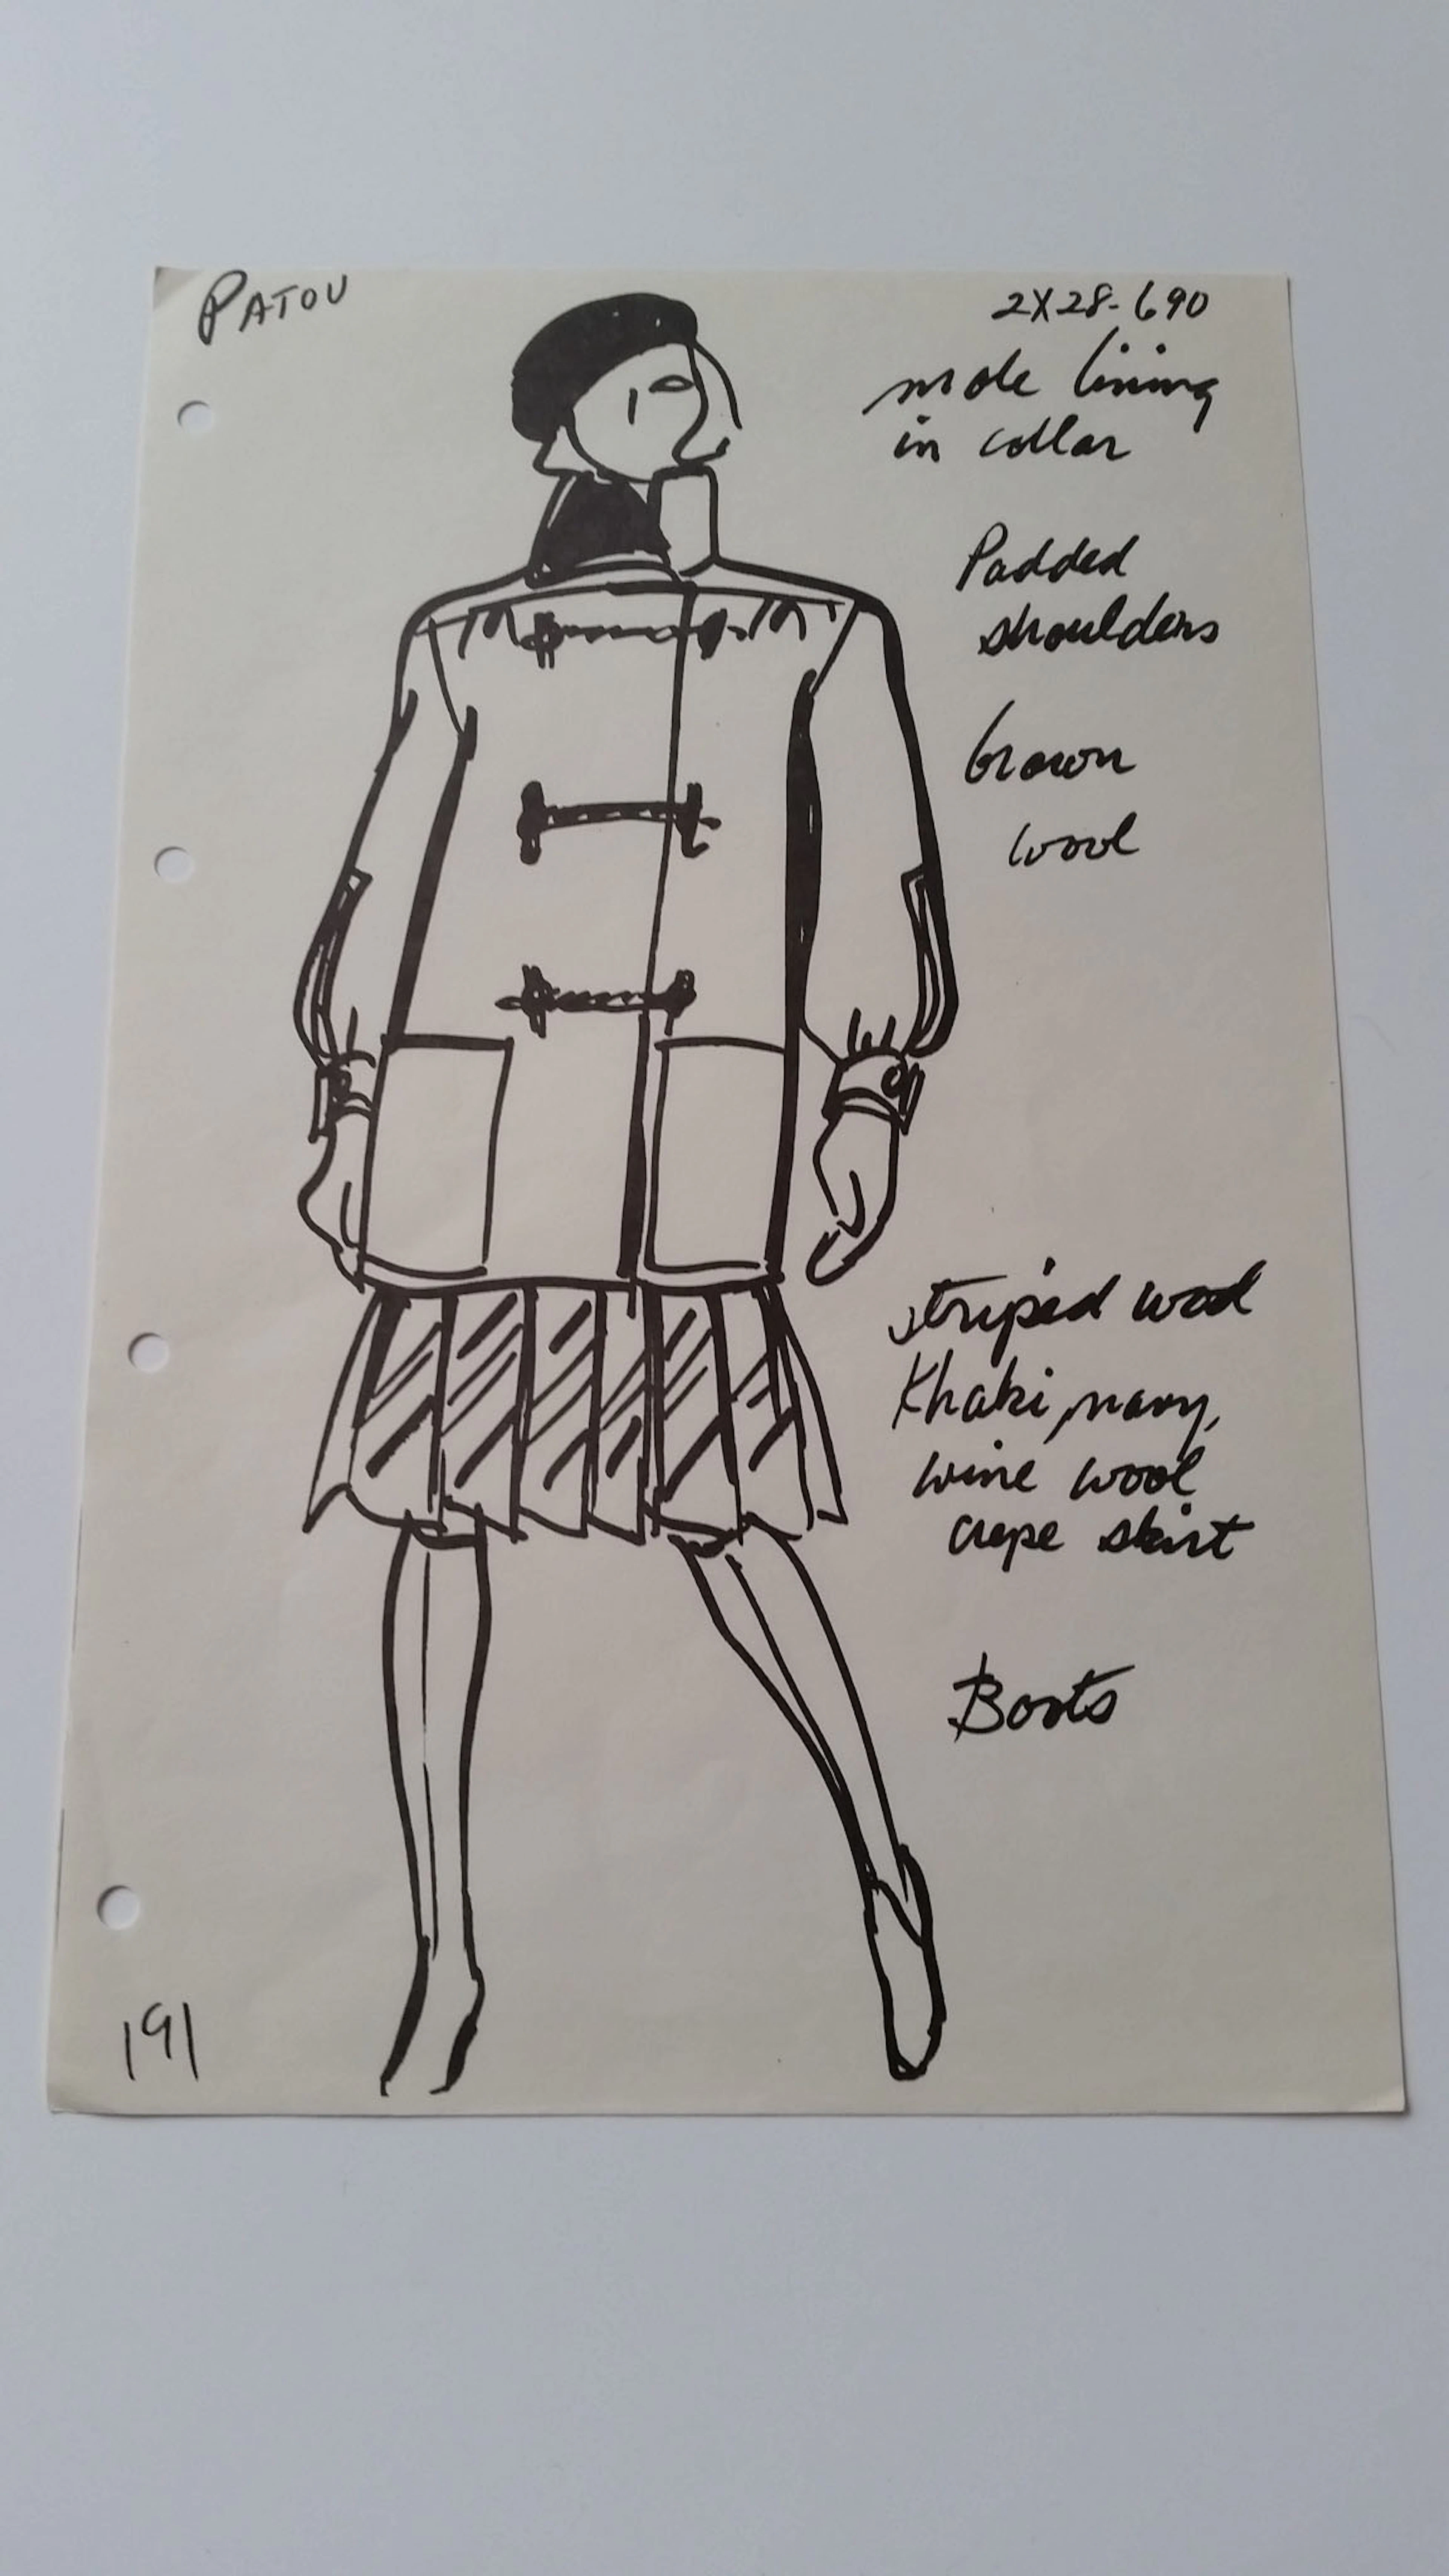 PATOU
2X28-690
mole lining
in collar
Padded
shoulders
brown
wool
striped wool
Khaki, navy,
wine wool
crepe skirt
Boots
191